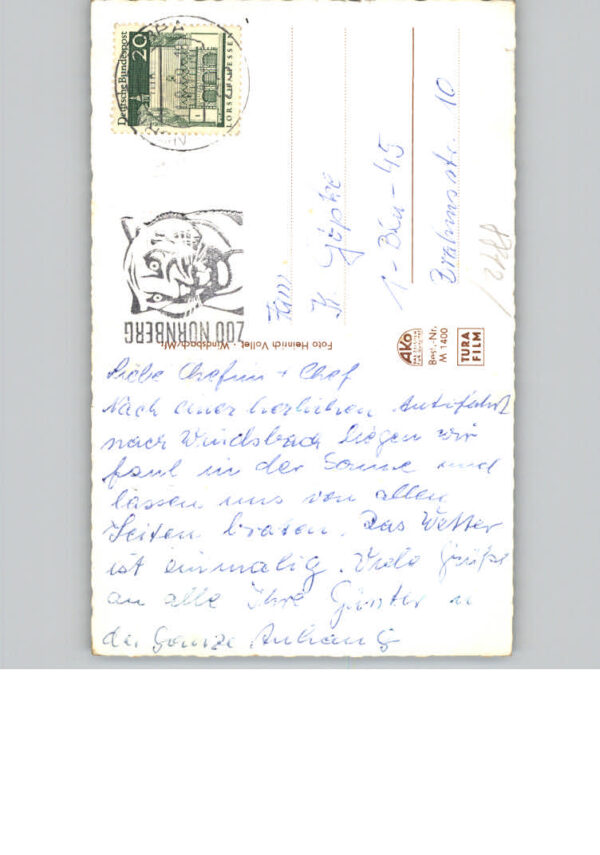 Liebe Chefin + Chef
Nach einer herlichen Autofahrt
nach Windsbach liegen wir
faul in der Sonne und
lassen uns von allen
Seiten braten. Das Wetter
ist einmalig. Viele Grüße
an alle Ihre Günter u
der Ganze Anhang
Deutsche Bundespost
20
LORSCH/HESSEN
ZOO NÜRNBERG
Fam
K. Göpke
1-Bln-45
Brahmsstr. 10
Foto Heinrich Vollet · Windsbach/Mfr.
AKo
Best.-Nr.
M 1400
TURA
FILM